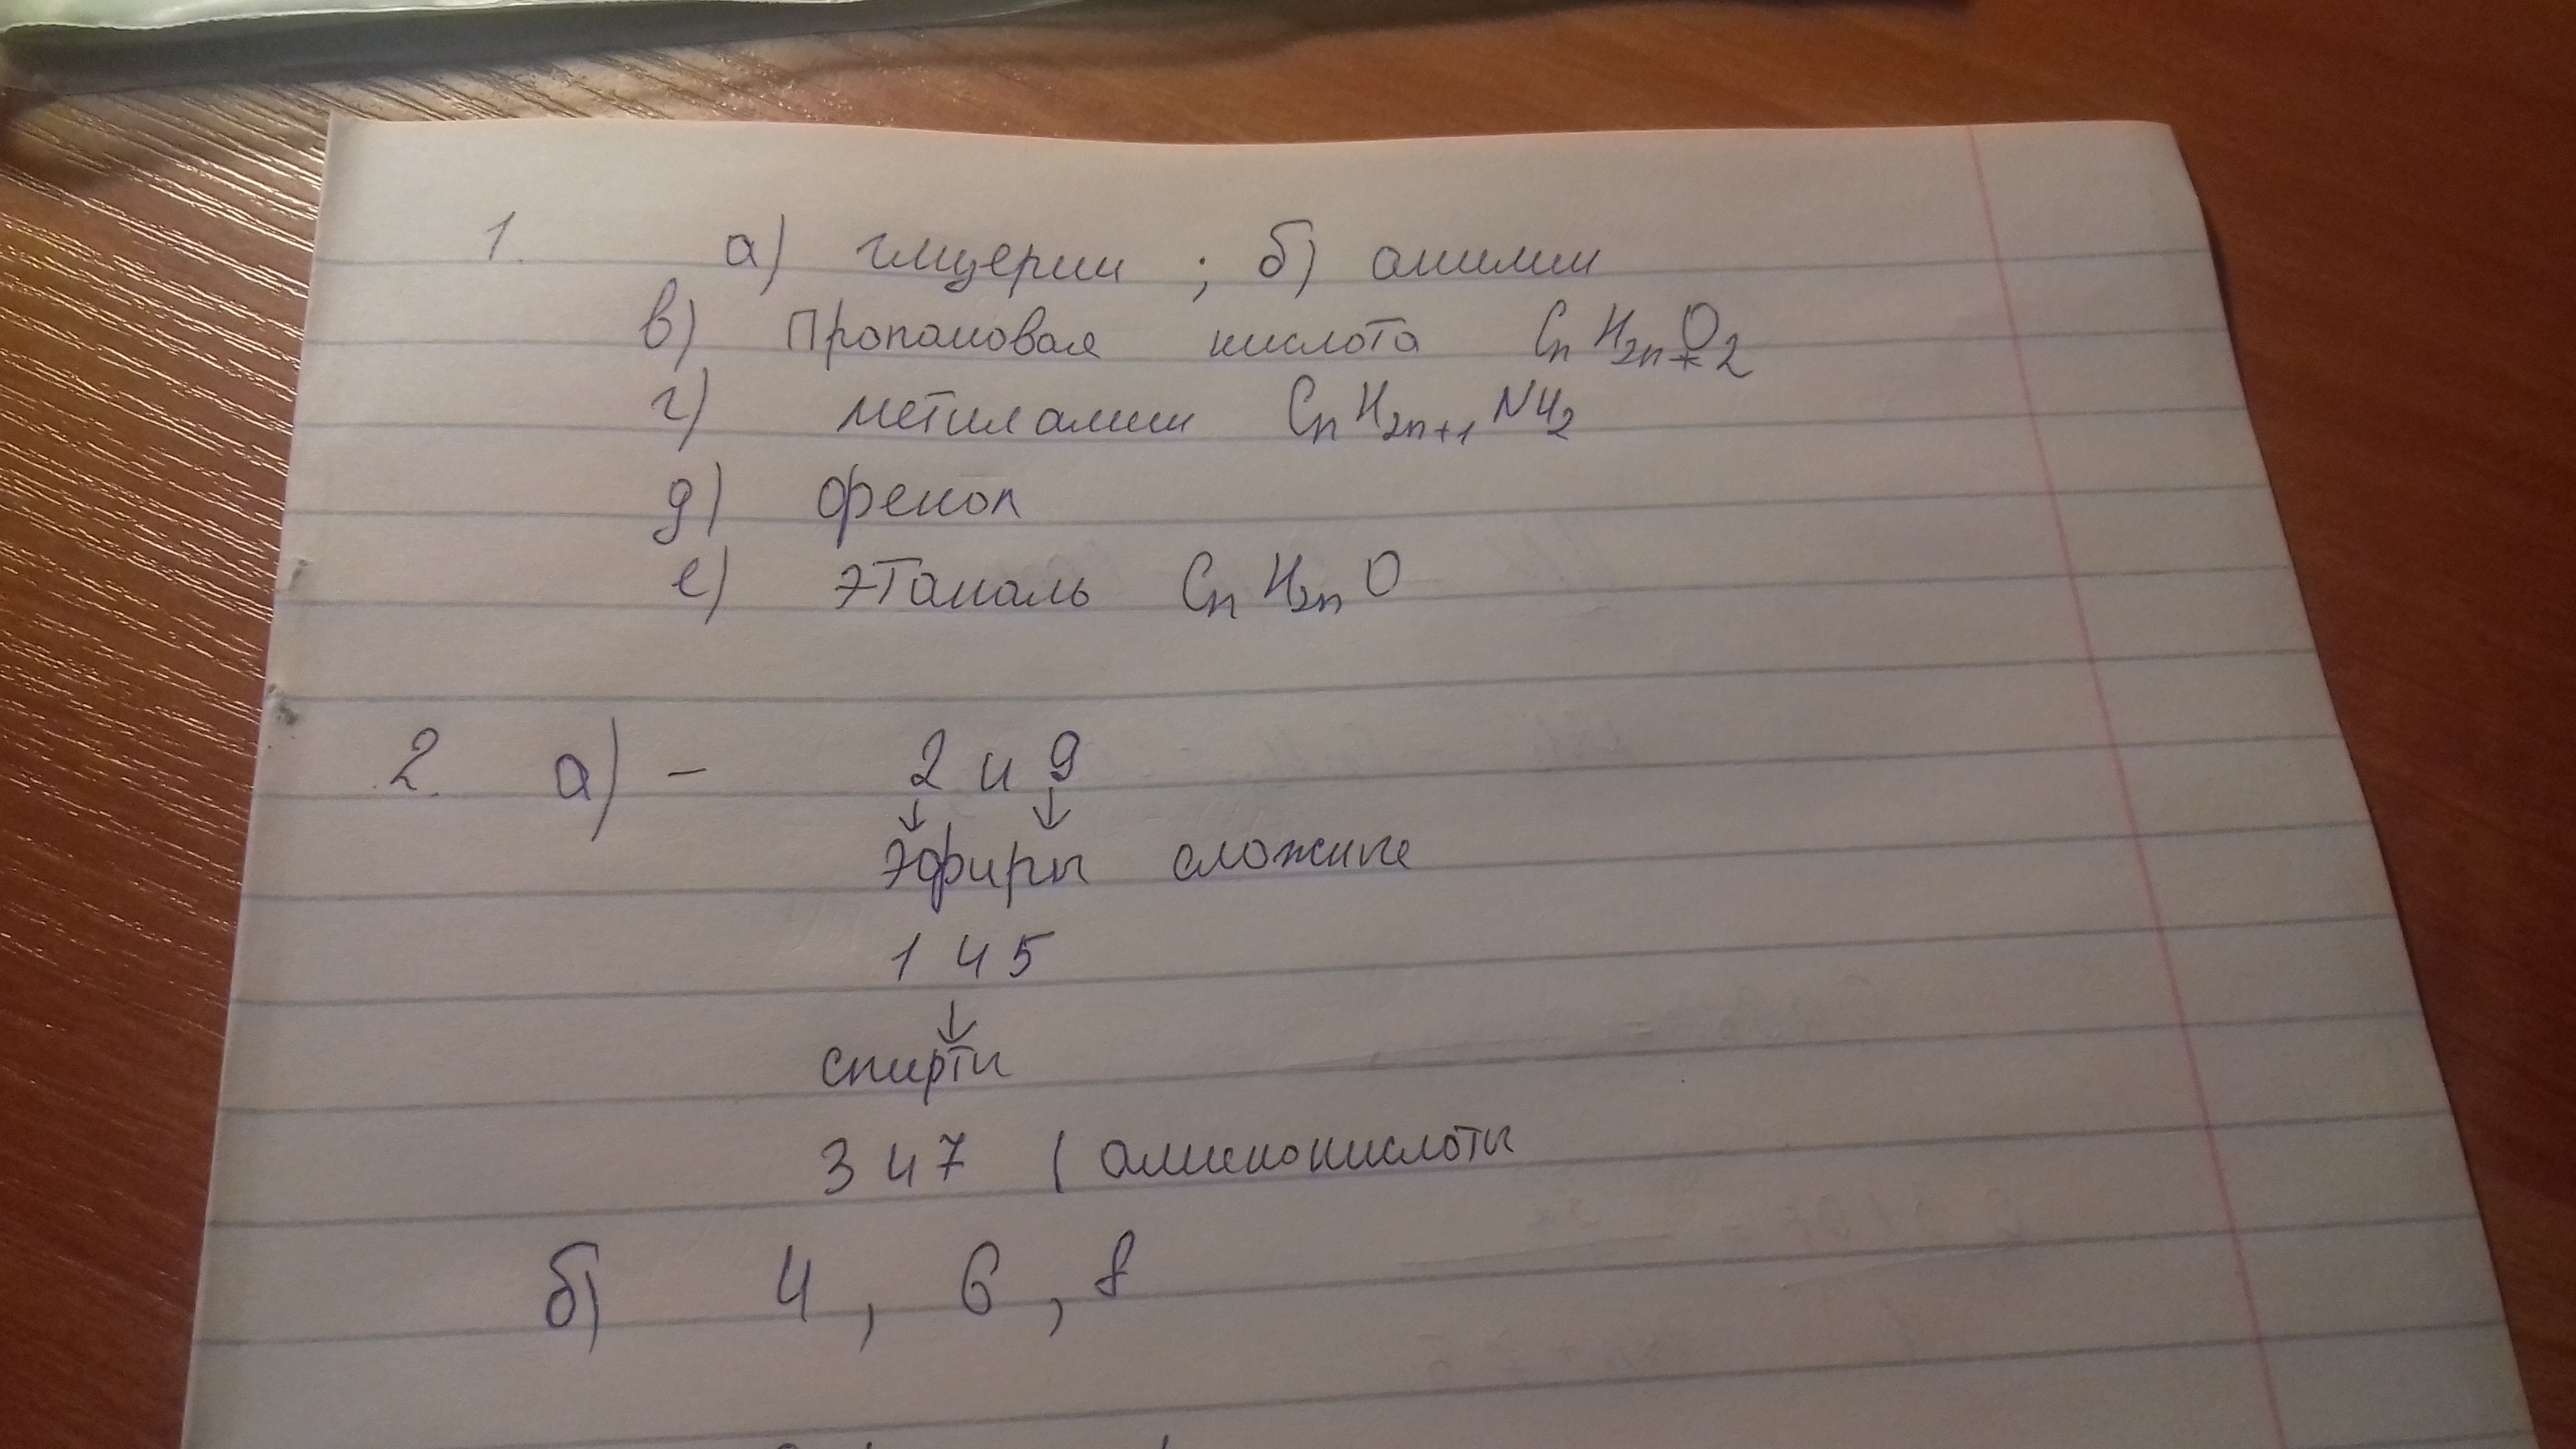 1. а) глицерин ; б) анилин
в) Пропановая кислота CnH2nO2
г) метиламин CnH2n+1NH2
д) фенол
е) этаналь CnH2nO
2. а) – 2 и 9
↓ ↓
эфиры сложные
1 и 5
↓
спирты
3 и 7 ( аминокислоты
б) 4, 6, 8